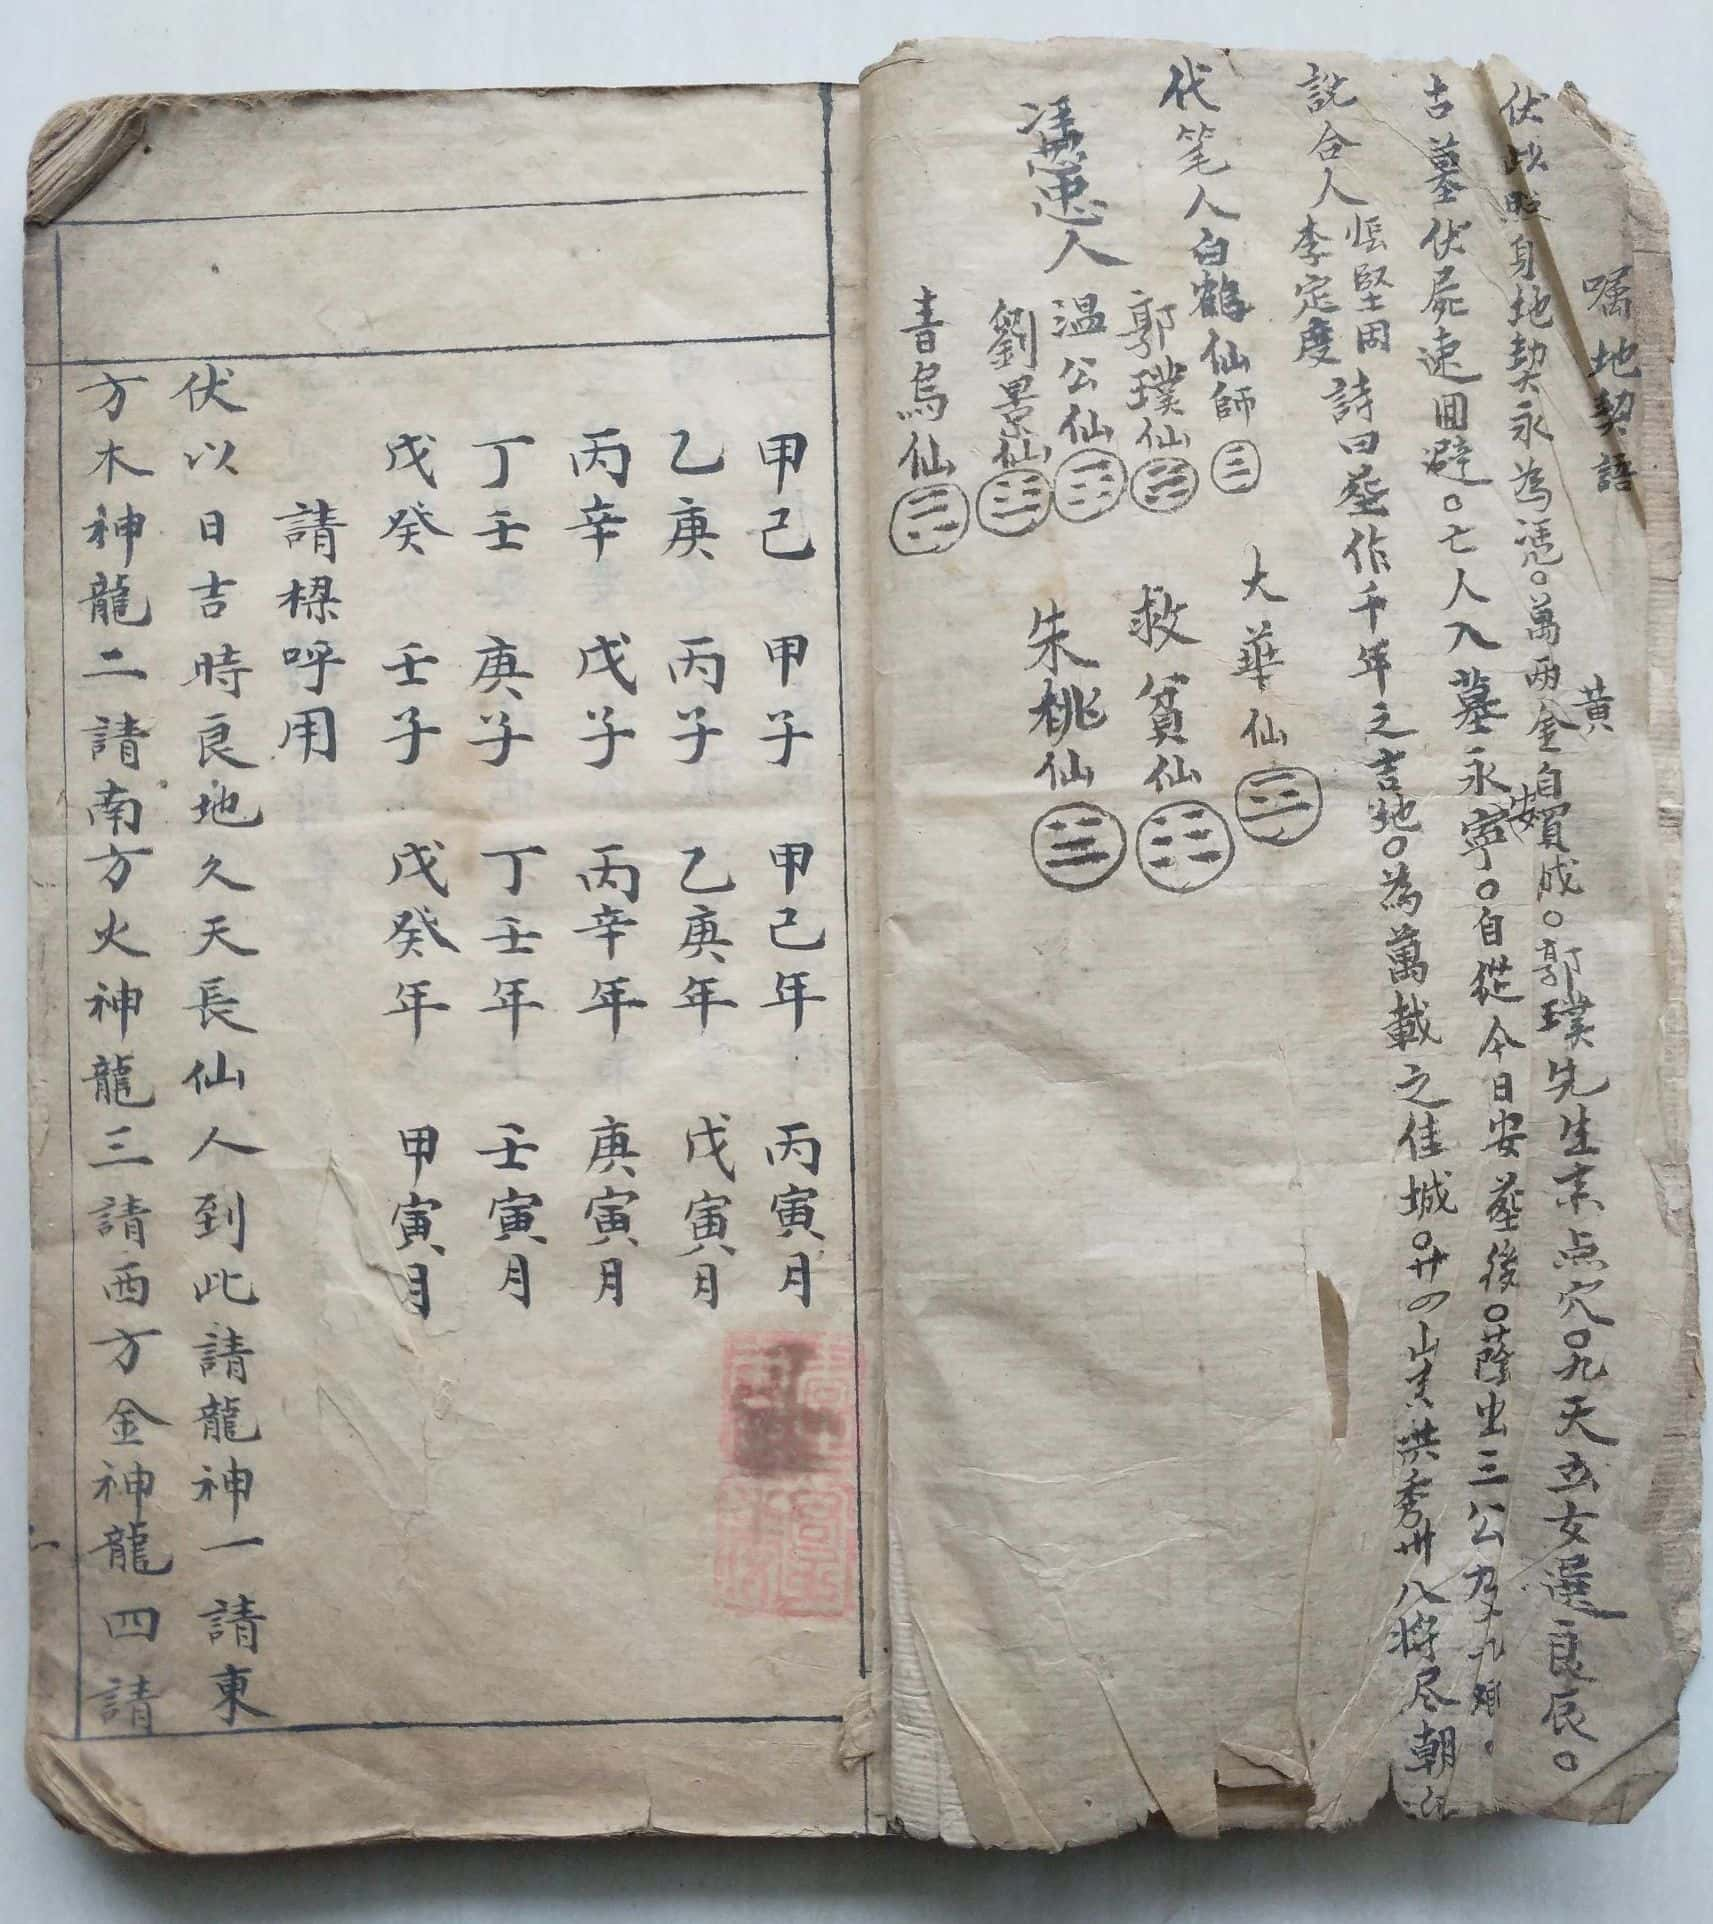 嘱地契語
伏以照身地契永為憑。萬両黄金自買成。郭璞先生来点穴。九天玄女選良辰。
古墓伏屍速囬避。亡人入墓永安寧。自從今日安葬後。蔭出三公
詩曰葬作千年之吉地。為萬載之佳城。廿四山出洪秀廿八將尽朝
説合人
張堅固
李定度
代笔人白鶴仙師
憑忠人
郭璞仙
温公仙
劉景仙
青烏仙
大華仙
救貧仙
朱桃仙
甲己 甲子 甲己年 丙寅月
乙庚 丙子 乙庚年 戊寅月
丙辛 戊子 丙辛年 庚寅月
丁壬 庚子 丁壬年 壬寅月
戊癸 壬子 戊癸年 甲寅月
請樑呼用
伏以日吉時良地久天長仙人到此請龍神一請東
方木神龍二請南方火神龍三請西方金神龍四請